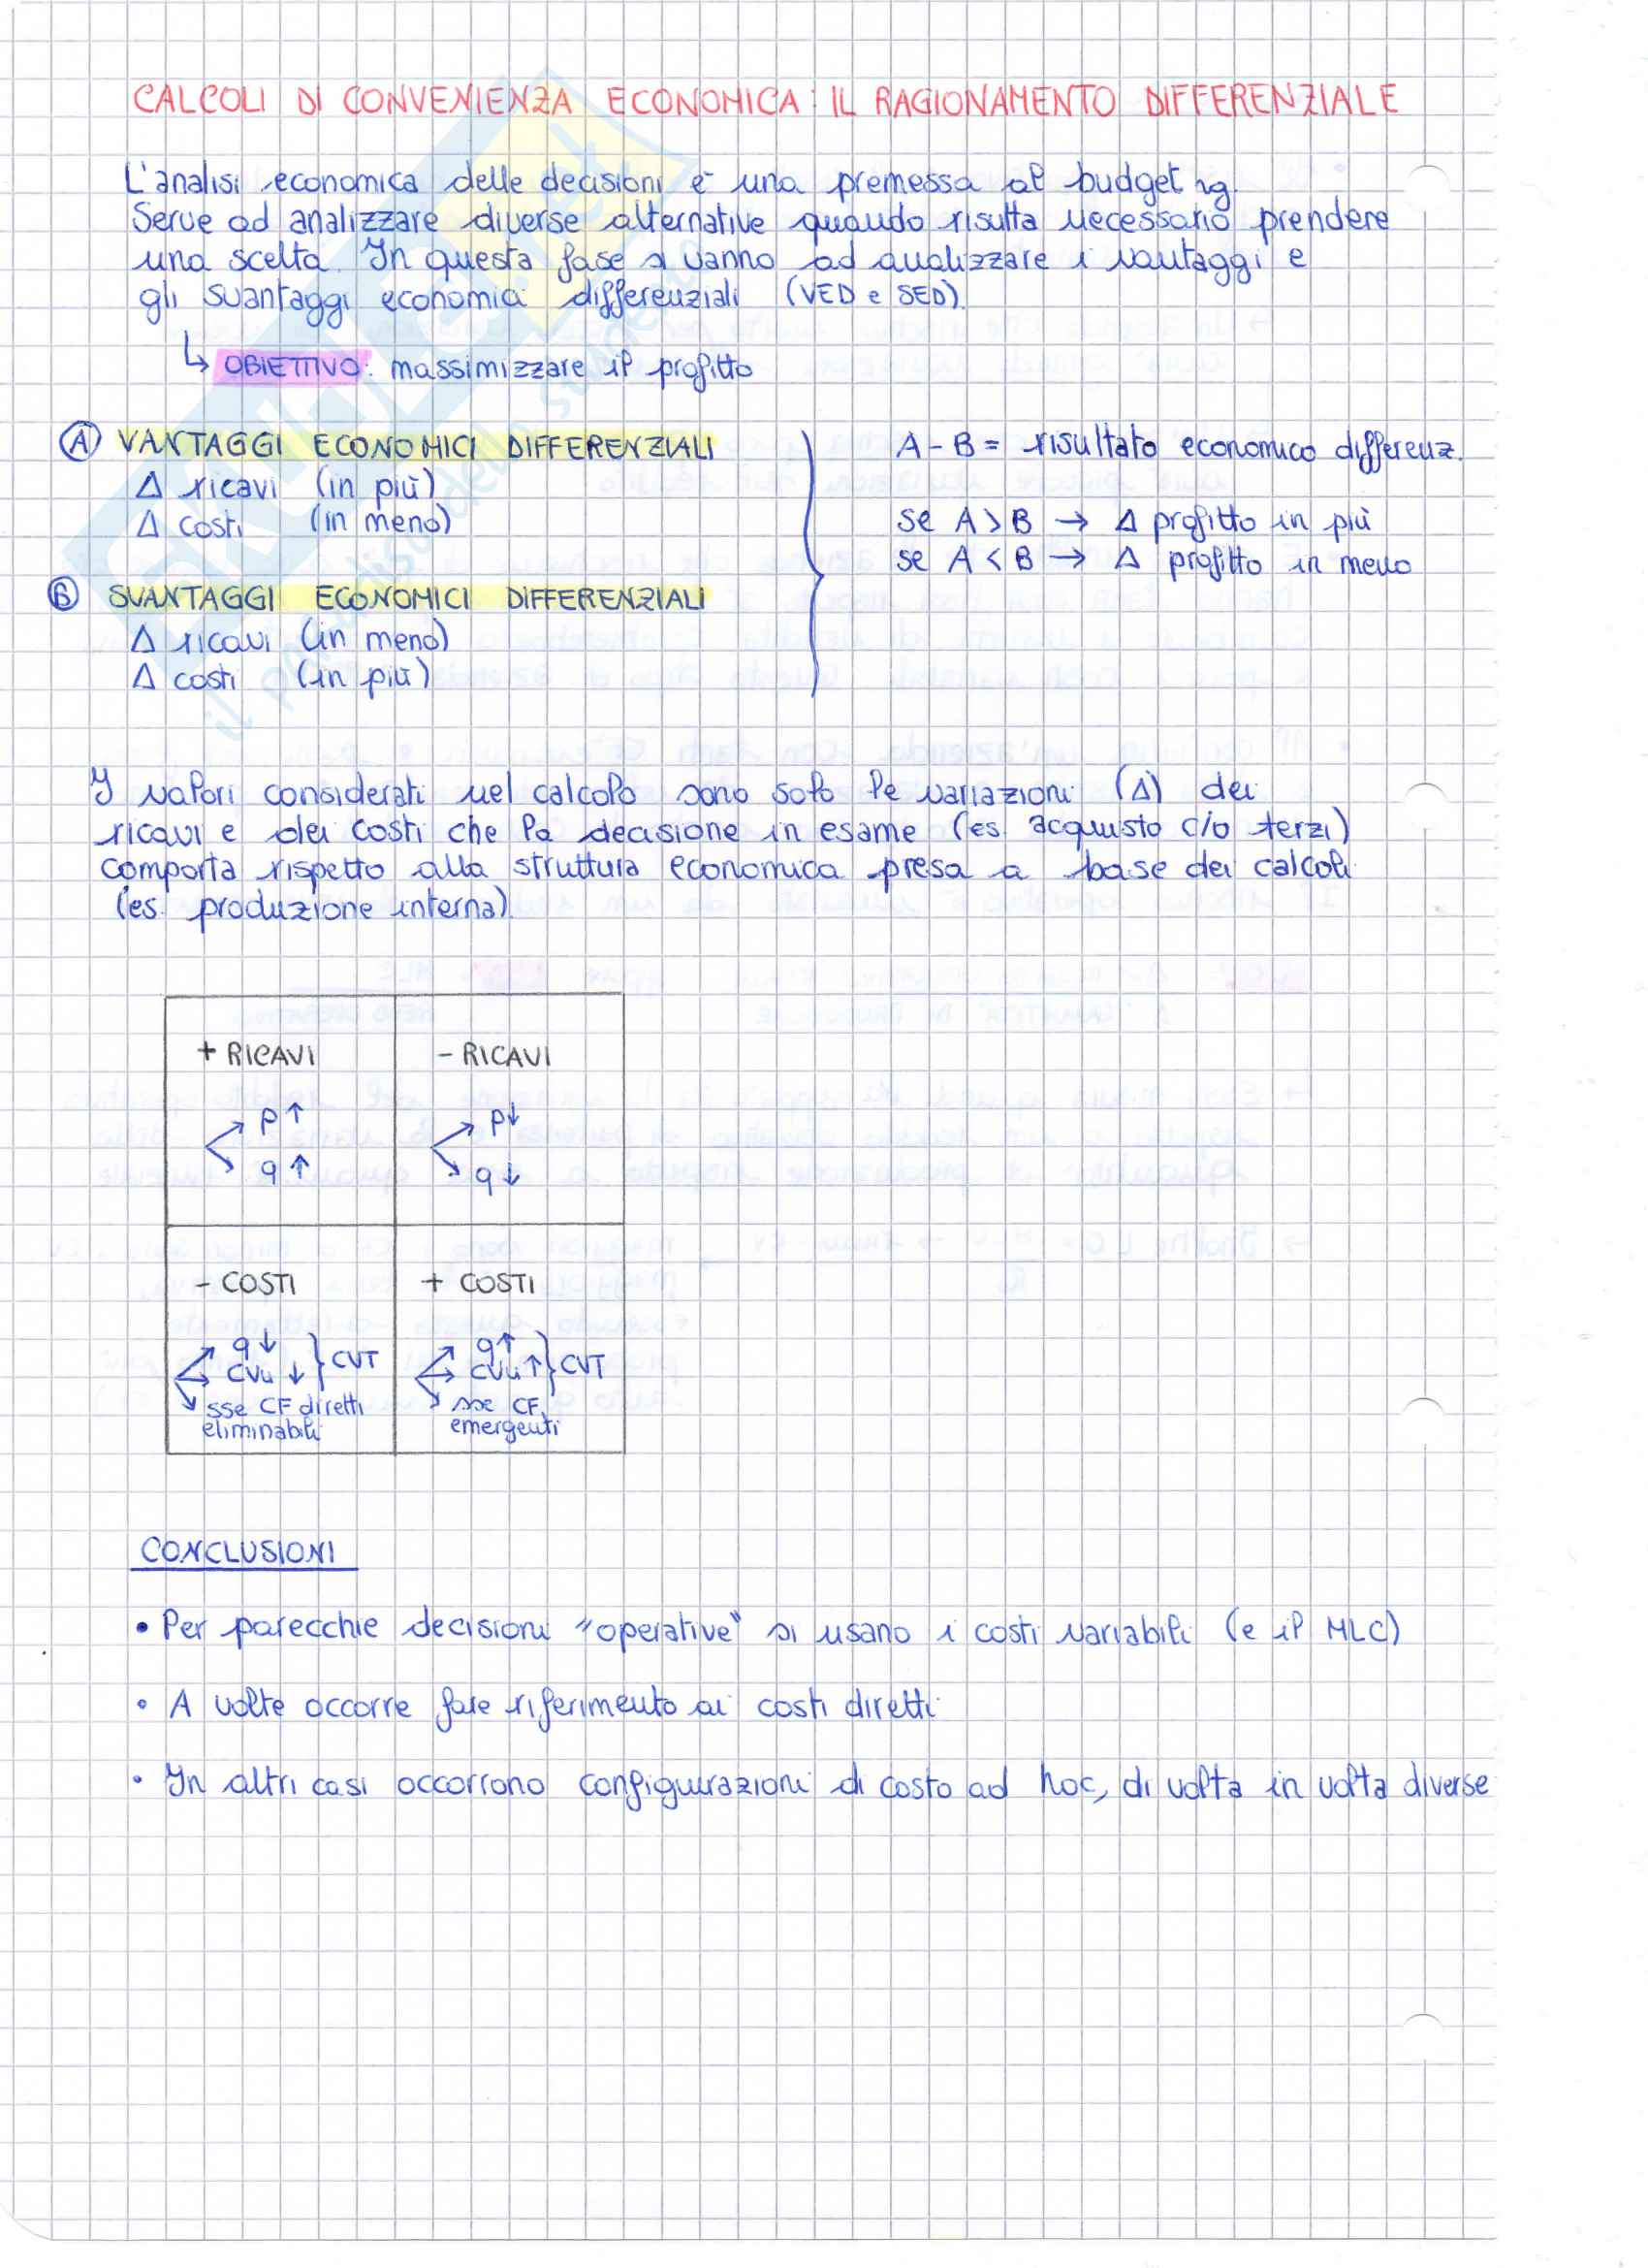 CALCOLI DI CONVENIENZA ECONOMICA: IL RAGIONAMENTO DIFFERENZIALE
L'analisi economica delle decisioni è una premessa al budget ng.
Serve ad analizzare diverse alternative quando risulta necessario prendere
una scelta. In questa fase si vanno ad analizzare i vantaggi e
gli svantaggi economici differenziali (VED e SED).
↳ OBIETTIVO: massimizzare il profitto
A VANTAGGI ECONOMICI DIFFERENZIALI
Δ ricavi (in più)
Δ costi (in meno)
B SVANTAGGI ECONOMICI DIFFERENZIALI
Δ ricavi (in meno)
Δ costi (in più)
A - B = risultato economico differenz.
se A > B → Δ profitto in più
se A < B → Δ profitto in meno
I valori considerati nel calcolo sono solo le variazioni (Δ) dei
ricavi e dei costi che la decisione in esame (es. acquisto c/o terzi)
comporta rispetto alla struttura economica presa a base dei calcoli
(es. produzione interna).
+ RICAVI
p ↑
q ↑
- RICAVI
p ↓
q ↓
- COSTI
q ↓
CVu ↓ } CVT
sse CF diretti
eliminabili
+ COSTI
q ↑
CVu ↑ } CVT
sse CF
emergenti
CONCLUSIONI
• Per parecchie decisioni "operative" si usano i costi variabili (e il MLC)
• A volte occorre fare riferimento ai costi diretti
• In altri casi occorrono configurazioni di costo ad hoc, di volta in volta diverse